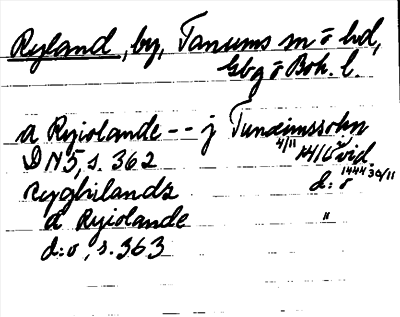 Ryland, by, Tanums sn o hd,
Gbg o Boh. l.
a Ryiolande -- j Tuneimssokn
4/11 1415 vid.
DN 5, s. 362 d:o 1444 30/11
Ryghilandz
a Ryiolande "
d:o, s. 363